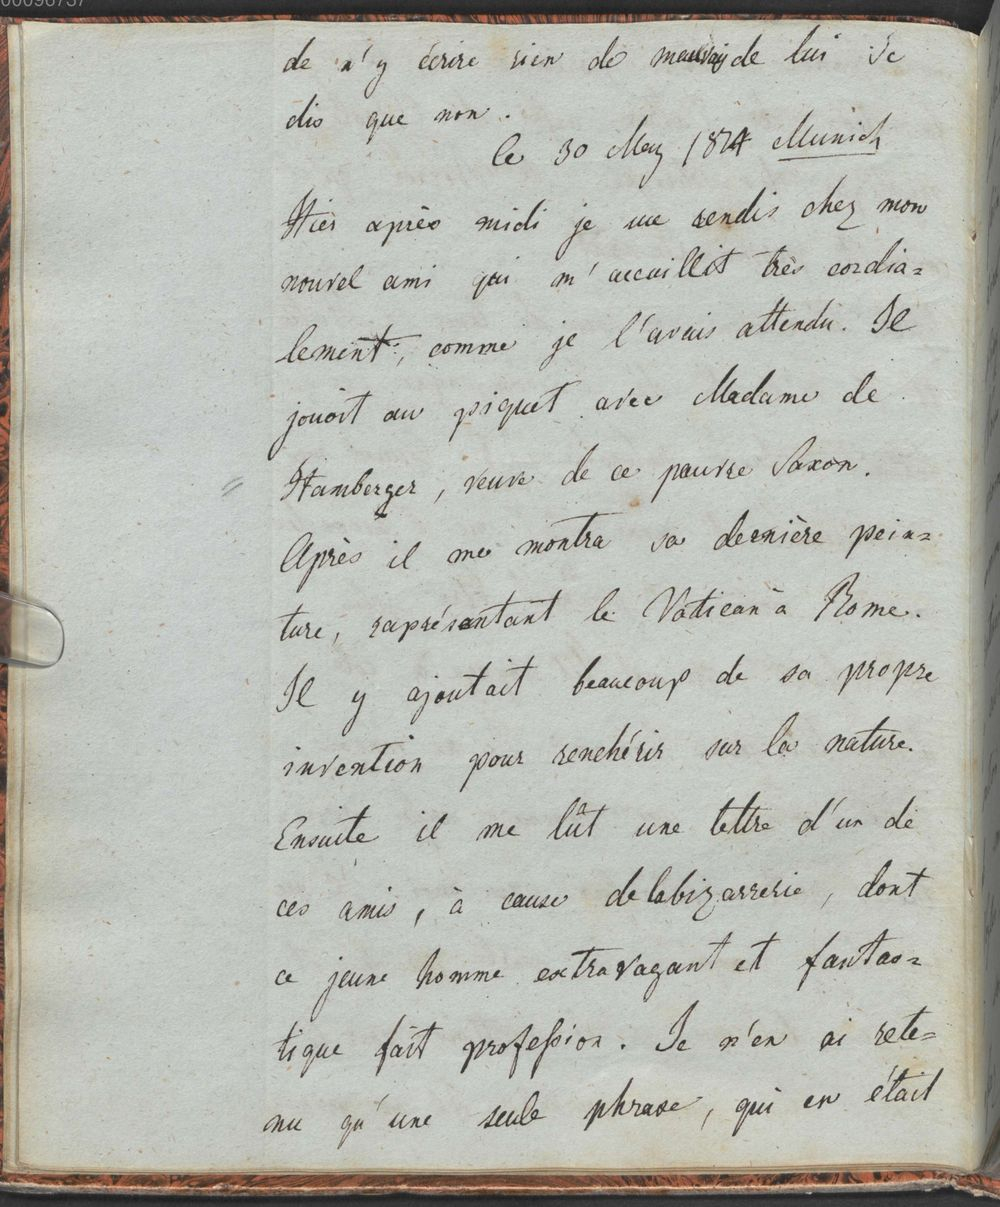 00096737
de n'y écrire rien de mauvais de lui Je
dis que non.
le 30 May 1814 Munich
Hier après midi je me rendis chez mon
nouvel ami qui m'accuillit très cordia=
lement, comme je l'avais attendu. Il
jouoit au piquet avec Madame de
Hamberger, veuve de ce pauvre Saxon.
Après il me montra sa dernière pein=
ture, raprésentant le Vatican à Rome.
Il y ajoutait beaucoup de sa propre
invention pour renchérir sur la nature.
Ensuite il me lût une lettre d'un de
ces amis, à cause de la bizarrerie, dont
ce jeune homme extravagant et fantas=
tique fait profession. Je n'en ai rete=
nu qu'une seule phrase, qui en était